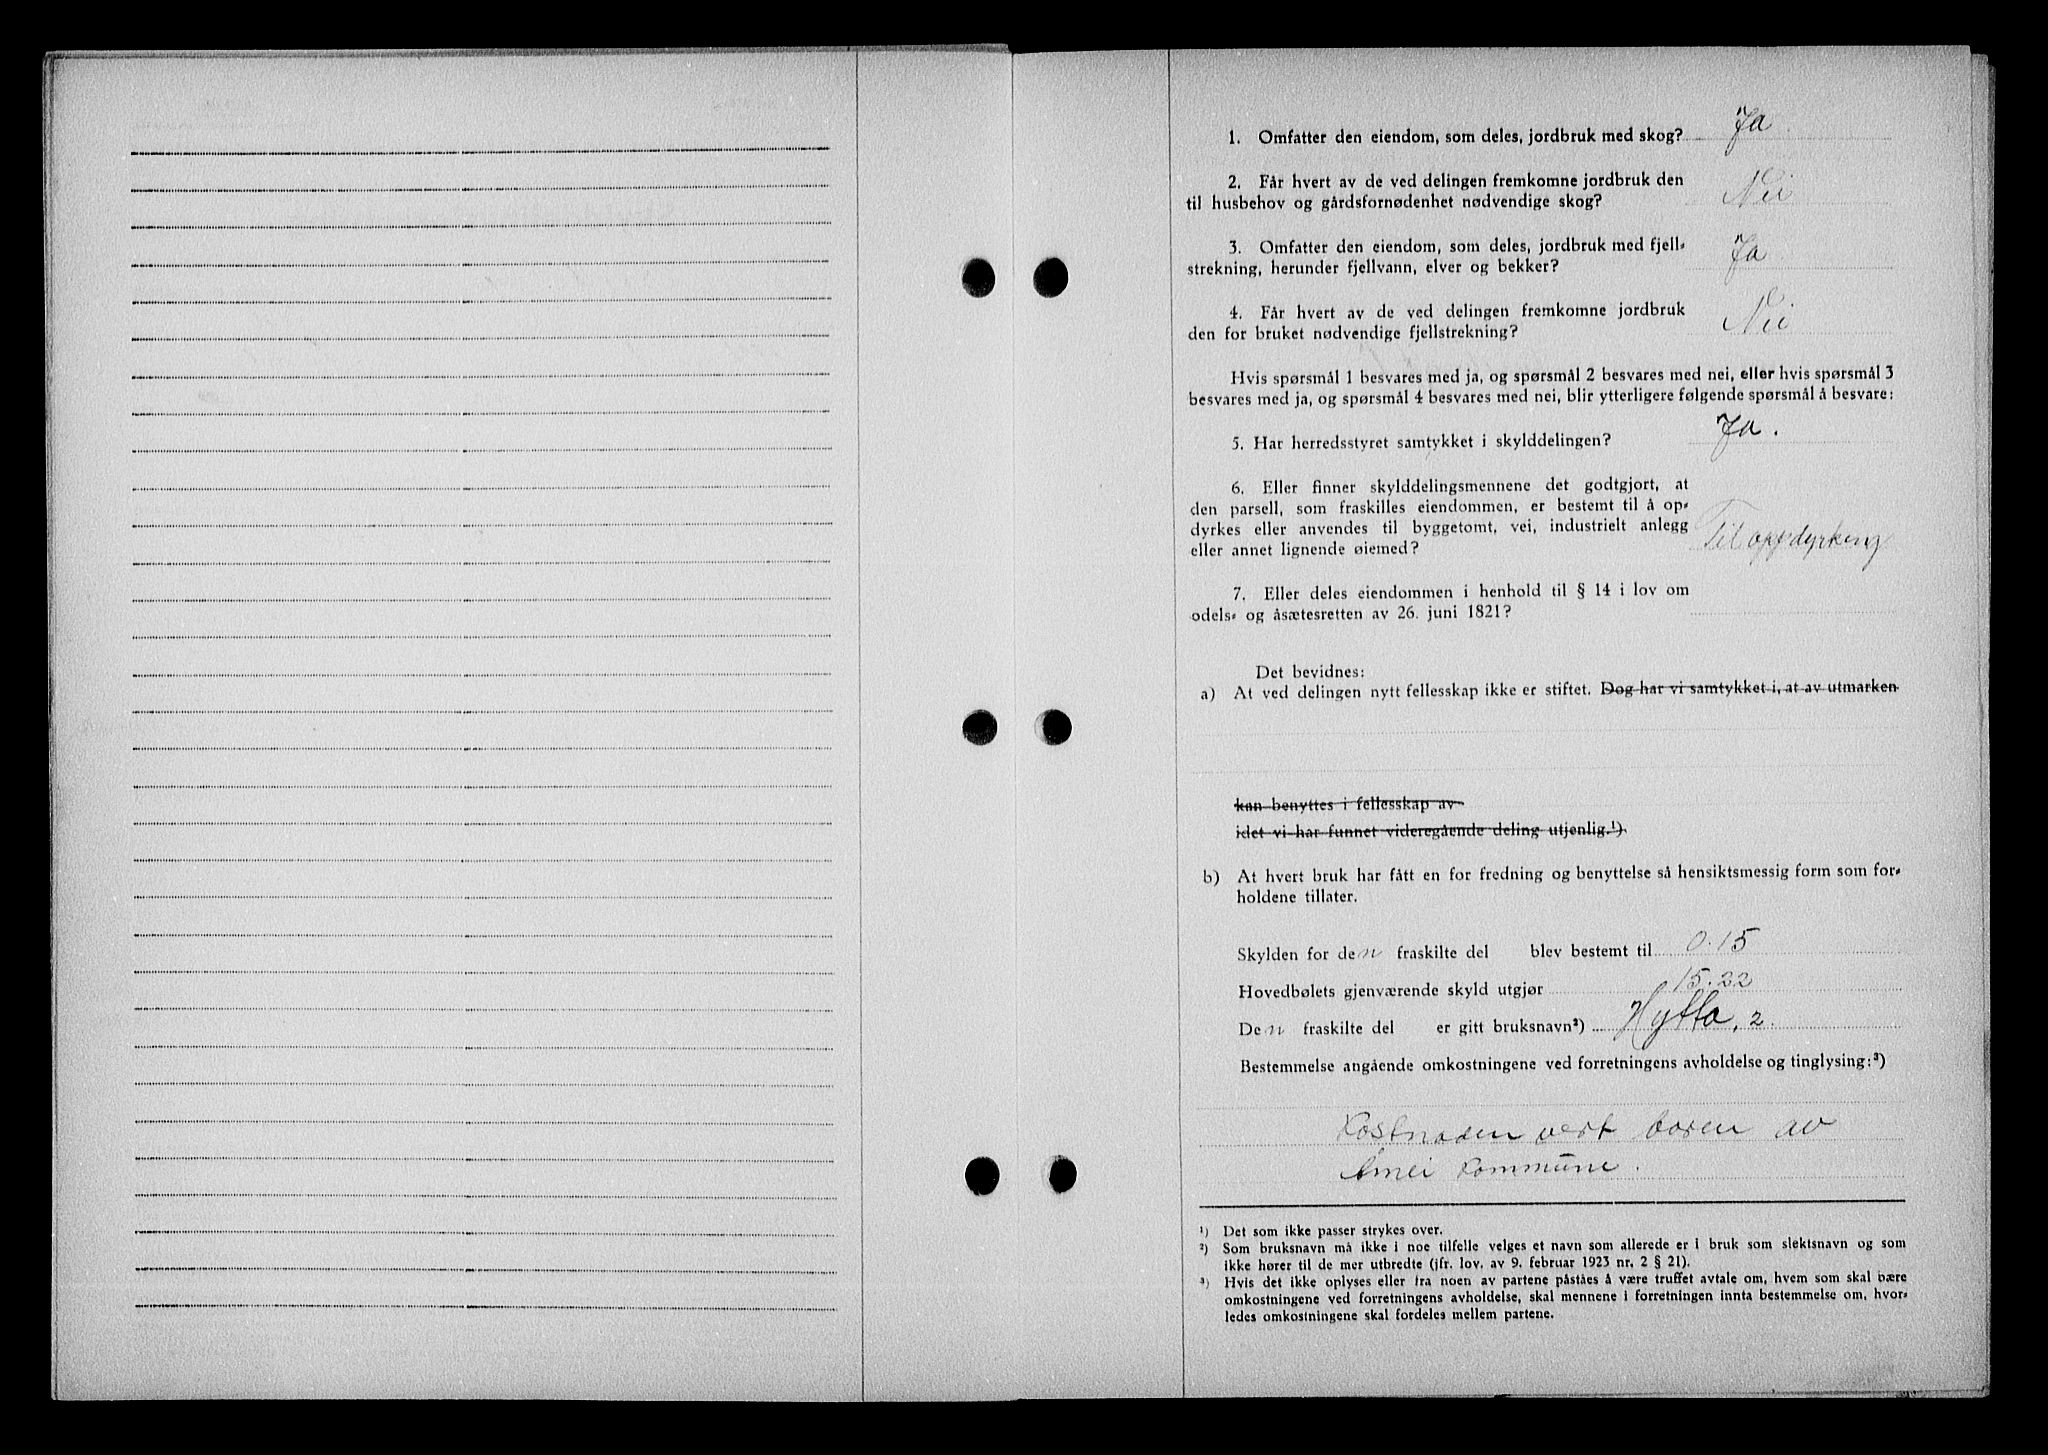 1. Omfatter den eiendom, som deles, jordbruk med skog? Ja.
2. Får hvert av de ved delingen fremkomne jordbruk den
til husbehov og gårdsfornødenhet nødvendige skog? Nei
3. Omfatter den eiendom, som deles, jordbruk med fjell-
strekning, herunder fjellvann, elver og bekker? Ja
4. Får hvert av de ved delingen fremkomne jordbruk
den for bruket nødvendige fjellstrekning? Nei
Hvis spørsmål 1 besvares med ja, og spørsmål 2 besvares med nei, eller hvis spørsmål 3
besvares med ja, og spørsmål 4 besvares med nei, blir ytterligere følgende spørsmål å besvare:
5. Har herredsstyret samtykket i skylddelingen? Ja.
6. Eller finner skylddelingsmennene det godtgjort, at
den parsell, som fraskilles eiendommen, er bestemt til å op-
dyrkes eller anvendes til byggetomt, vei, industrielt anlegg
eller annet lignende øiemed? Til oppdyrking
7. Eller deles eiendommen i henhold til § 14 i lov om
odels- og åsætesretten av 26. juni 1821?
Det bevidnes:
a) At ved delingen nytt fellesskap ikke er stiftet. Dog har vi samtykket i, at av utmarken
kan benyttes i fellesskap av
idet vi har funnet videregående deling utjenlig.¹)
b) At hvert bruk har fått en for fredning og benyttelse så hensiktsmessig form som for-
holdene tillater.
Skylden for den fraskilte del blev bestemt til 0.15
Hovedbølets gjenværende skyld utgjør 15.22
Den fraskilte del er gitt bruksnavn²) Hytta, 2.
Bestemmelse angående omkostningene ved forretningens avholdelse og tinglysing:³)
Kostnaden vert boren av
kommune.
¹) Det som ikke passer strykes over.
²) Som bruksnavn må ikke i noe tilfelle velges et navn som allerede er i bruk som slektsnavn og som
ikke hører til de mer utbredte (jfr. lov. av 9. februar 1923 nr. 2 § 21).
³) Hvis det ikke oplyses eller fra noen av partene påståes å være truffet avtale om, hvem som skal bære
omkostningene ved forretningens avholdelse, skal mennene i forretningen innta bestemmelse om, hvor-
ledes omkostningene skal fordeles mellem partene.